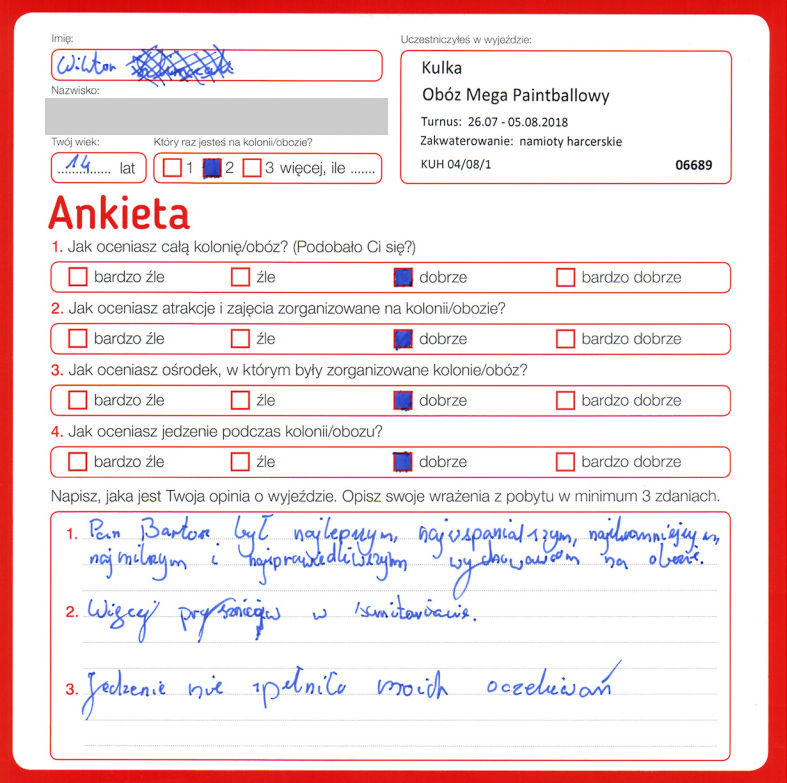 Imię:
Wiktor
Uczestniczyłeś w wyjeździe:
Kulka
Obóz Mega Paintballowy
Turnus: 26.07 - 05.08.2018
Zakwaterowanie: namioty harcerskie
KUH 04/08/1 06689
Nazwisko:
Twój wiek: Który raz jesteś na kolonii/obozie?
14 lat 1 2 3 więcej, ile .......
Ankieta
1. Jak oceniasz całą kolonię/obóz? (Podobało Ci się?)
bardzo źle źle dobrze bardzo dobrze
2. Jak oceniasz atrakcje i zajęcia zorganizowane na kolonii/obozie?
bardzo źle źle dobrze bardzo dobrze
3. Jak oceniasz ośrodek, w którym były zorganizowane kolonie/obóz?
bardzo źle źle dobrze bardzo dobrze
4. Jak oceniasz jedzenie podczas kolonii/obozu?
bardzo źle źle dobrze bardzo dobrze
Napisz, jaka jest Twoja opinia o wyjeździe. Opisz swoje wrażenia z pobytu w minimum 3 zdaniach.
1. Pan Bartor był najlepszym, najwspanialszym,
najmilszym i najsprawiedliwszym wychowawcom na obozie.
2. Więcej pryszniców w sanitariacie.
3. Jedzenie nie spełniło moich oczekiwań